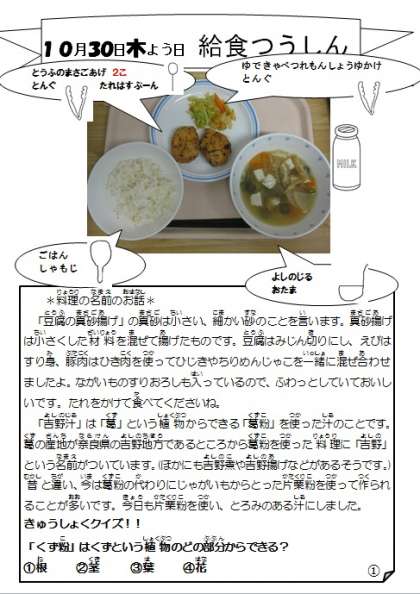 10月30日木よう日 給食つうしん
とうふのまさごあげ 2こ
とんぐ たれはすぷーん
ゆできゃべつれもんしょうゆかけ
とんぐ
MILK
ごはん
しゃもじ
よしのじる
おたま
＊料理の名前のお話＊
「豆腐の真砂揚げ」の真砂は小さい、細かい砂のことを言います。真砂揚げ
は小さくした材料を混ぜて揚げたものです。豆腐はみじん切りにし、えびは
すり身、豚肉はひき肉を使ってひじきやちりめんじゃこを一緒に混ぜ合わせ
ましたよ。ながいものすりおろしも入っているので、ふわっとしていておいし
いです。たれをかけて食べてくださいね。
「吉野汁」は「葛」という植物からできる「葛粉」を使った汁のことです。
葛の産地が奈良県の吉野地方であるところから葛粉を使った料理に「吉野」
という名前がついています。（ほかにも吉野煮や吉野揚げなどがあるそうです。）
昔と違い、今は葛粉の代わりにじゃがいもからとった片栗粉を使って作られ
ることが多いです。今日も片栗粉を使い、とろみのある汁にしました。
きゅうしょくクイズ！！
「くず粉」はくずという植物のどの部分からできる？
①根 ②茎 ③葉 ④花
①